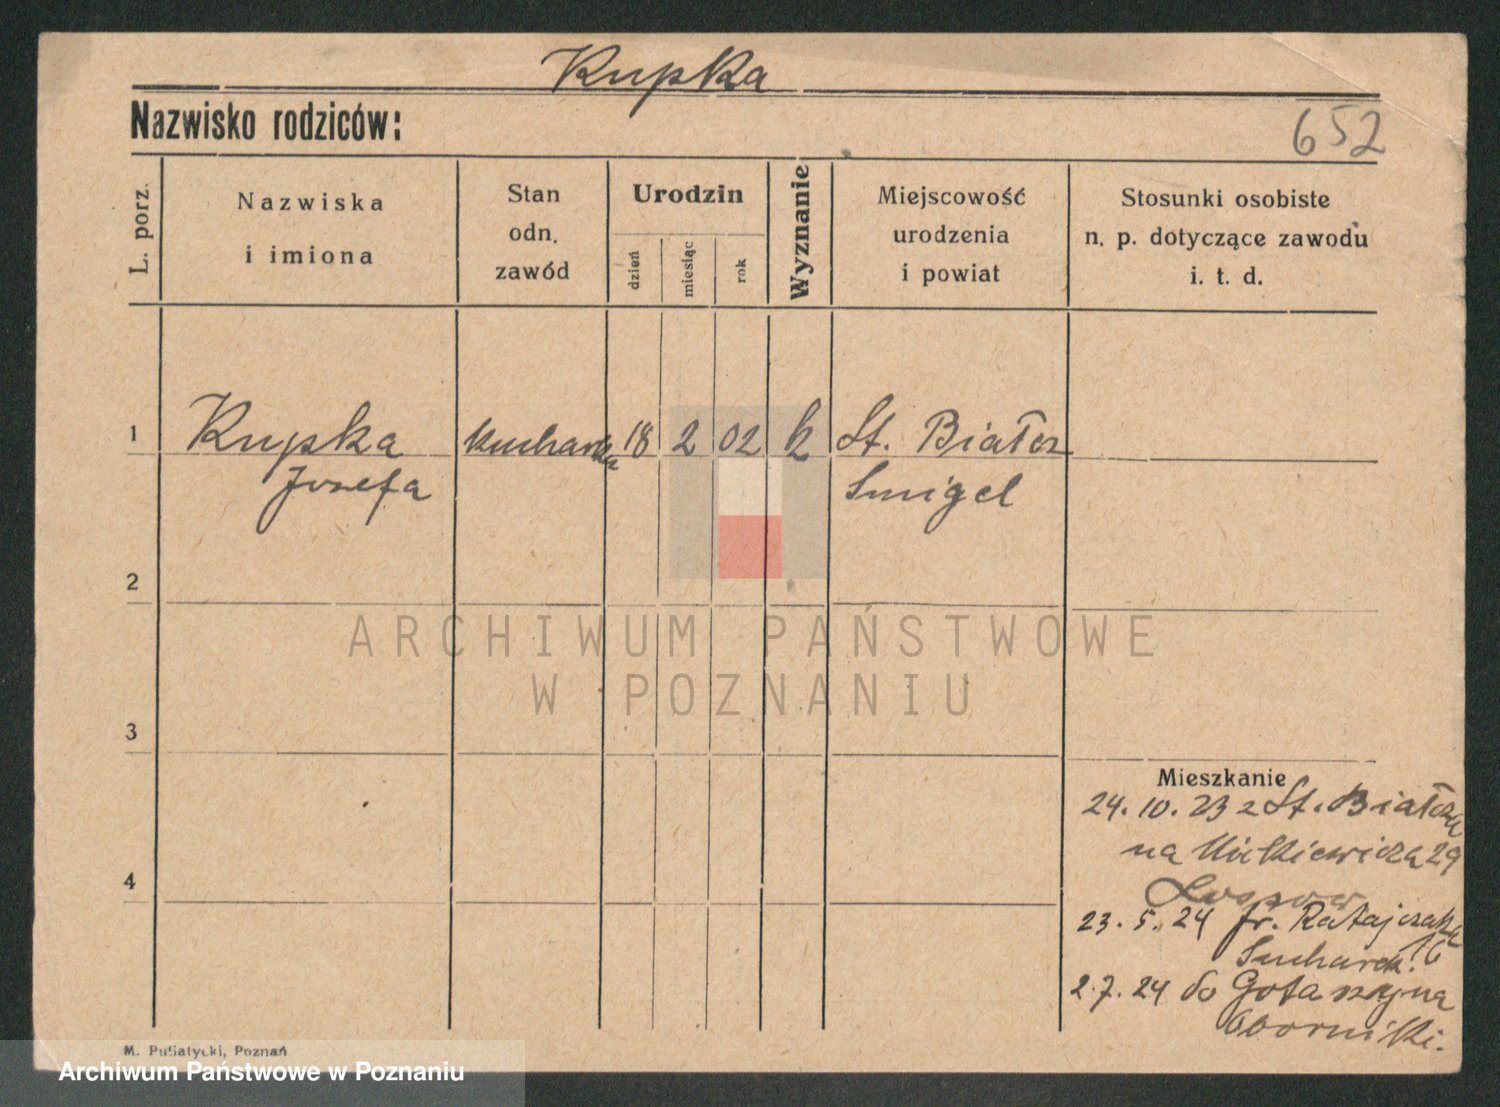 Kupka
Nazwisko rodziców:
652
L. porz.
Nazwiska
i imiona
Stan
odn.
zawód
Urodzin
dzień
miesiąc
rok
Wyznanie
Miejscowość
urodzenia
i powiat
Stosunki osobiste
n. p. dotyczące zawodu
i. t. d.
1 Kupka kucharka 18 2 02 k St. Białcz
Józefa Smigel
2
ARCHIWUM PAŃSTWOWE
W POZNANIU
3
Mieszkanie
24. 10. 23 z St. Białcza
na Mickiewicza 29
4
23. 5. 24 fr. Ratajczaka
16
2. 7. 24 do
Oborniki.
M. Putiatycki, Poznań
Archiwum Państwowe w Poznaniu